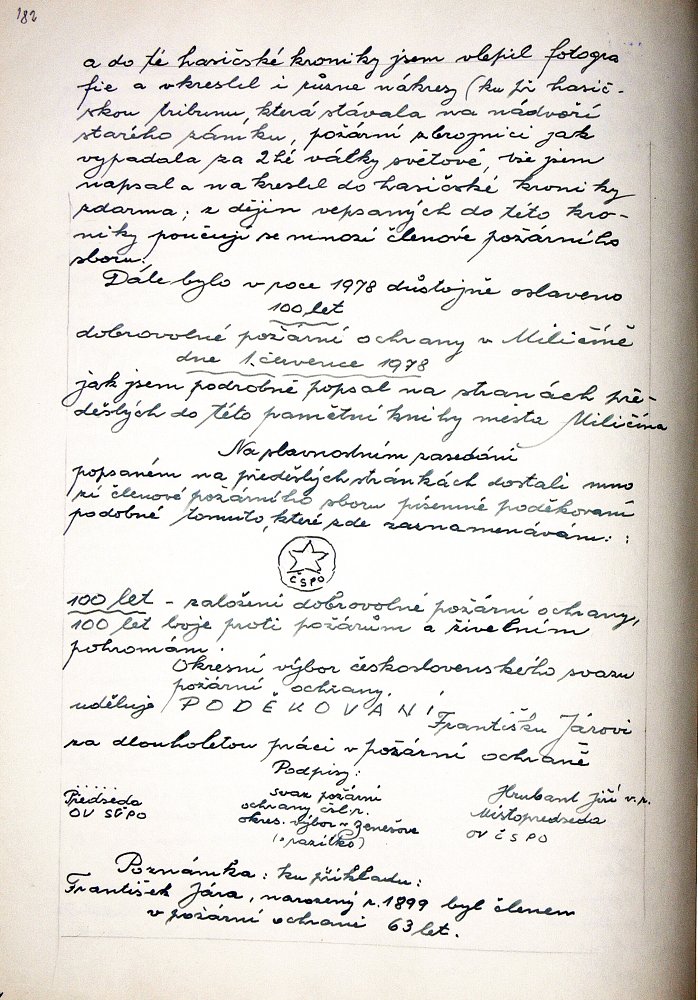 182
a do té hasičské kroniky jsem vlepil fotogra
fie a vkreslil i různe nákresy (ku př hasič-
skou tribunu, která stávala na nádvoří
starého zámku, požární zbrojnici jak
vypadala za 2hé války světové, vše jsem
napsal a nakreslil do hasičské kroniky
zdarma; z dějin vepsaných do této kro-
niky poučují se mnozí členové požárního
sboru.
Dále bylo v roce 1978 důstojně oslaveno
100 let
dobrovolné požární ochrany v Miličíně
dne 1. července 1978
jak jsem podrobně popsal na stranách pře-
dešlých do této pamětní knihy mesta Miličína
Na slavnostním zasedání
popsaném na předešlých stránkách dostali mno
zí členové požárního sboru písemné poděkovaní
podobné tomuto, které zde zaznamenávám: :
ČSPO
100 let - založení dobrovolné požární ochrany,
100 let boje proti požárům a živelním
pohromám.
Okresní výbor československého svazu
požární ochrany,
uděluje PODĚKOVANÍ
Františku Járovi
za dlouholetou práci v požární ochraně
Podpisy:
......
Předseda
OV SČPO
svaz požární
ochrany čsl. r.
okres. výbor v Benešově
(razítko)
Hrubant Jiří v.r.
Mistopredseda
OV ČSPO
Poznámka: ku příkladu:
František Jára, narozený r. 1899 byl členem
v požární ochraně 63 let.